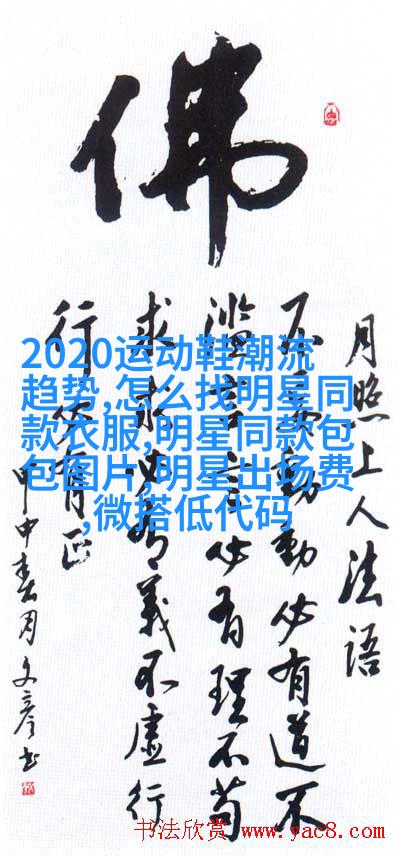 佛
月照上人法语
不妄动动必有道不
滥言言必有理不苟
求求必有义不虚行
行必有正
甲申春月文彦书
2020运动鞋潮流
趋势,怎么找明星同
款衣服,明星同款包
包图片,明星出场费
,微搭低代码
书法欣赏 www.yac8.com